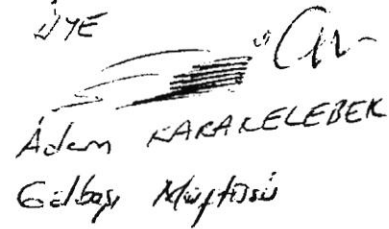 ÜYE
Adem KARAKELEBEK
Gölbaşı Müftüsü